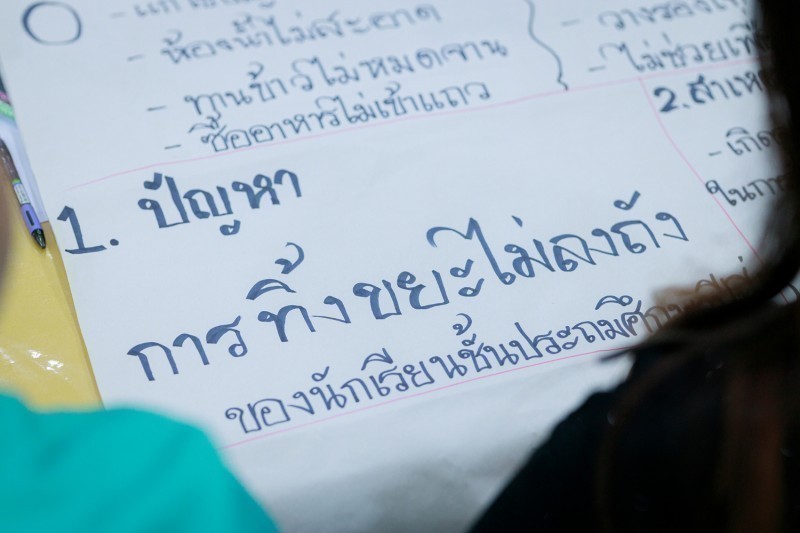 - ห้องน้ำไม่สะอาด
- ทานข้าวไม่หมดจาน
- ซื้ออาหารไม่เข้าแถว
- ไม่ช่วย
2. สาเห
1. ปัญหา
การทิ้งขยะไม่ลงถัง
ของนักเรียนชั้นประถมศึกษา
- เกิด
ในการ